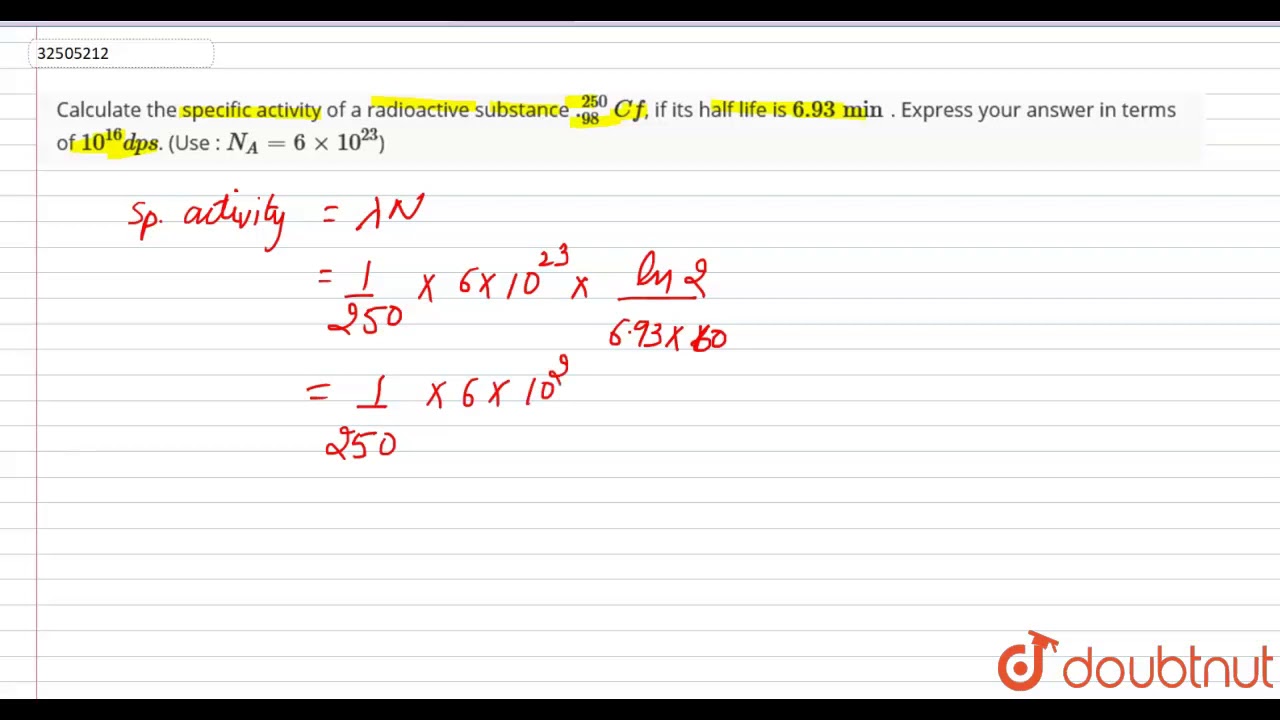 32505212
Calculate the specific activity of a radioactive substance .²⁵⁰₉₈Cf, if its half life is 6.93 min . Express your answer in terms
of 10¹⁶dps. (Use : N_A = 6 × 10²³)
Sp. activity = λN
= 1/250 × 6×10²³ × ln 2/6.93×60
= 1/250 × 6 × 10²
doubtnut